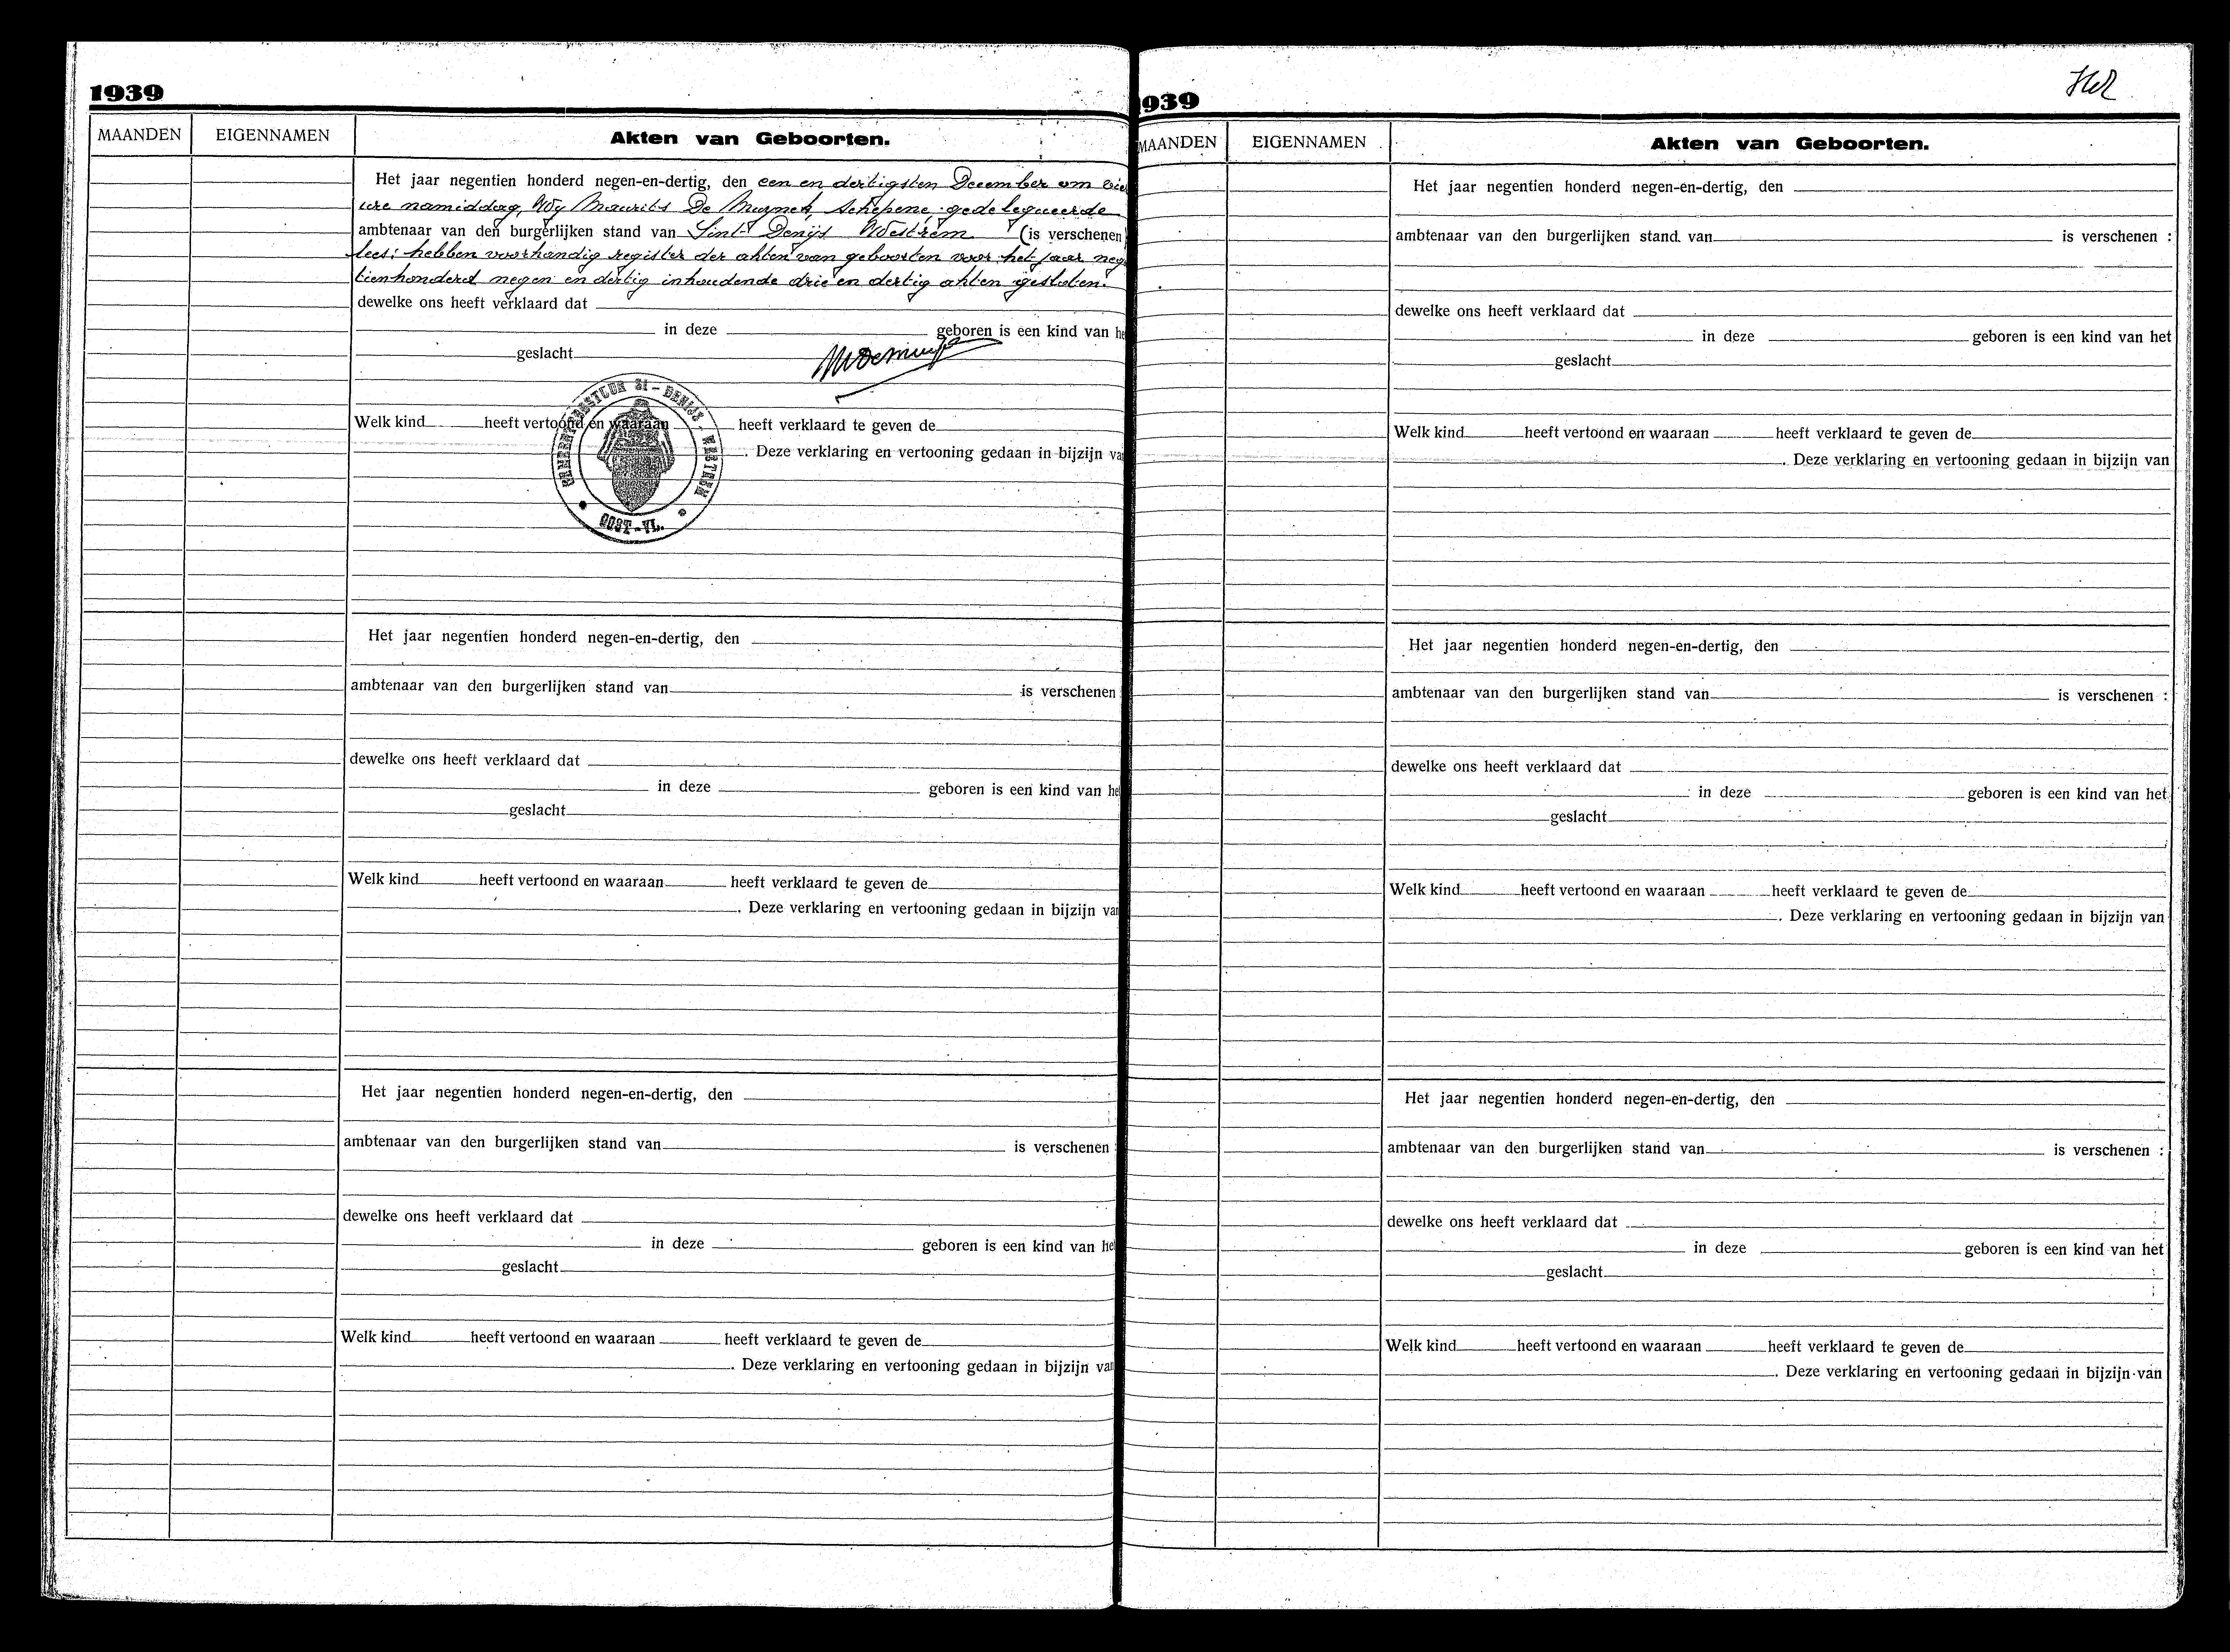 1939
MAANDEN EIGENNAMEN Akten van Geboorten.
Het jaar negentien honderd negen-en-dertig, den een en dertigsten December om vie
ure namiddag, Wy Maurits De Muynck, Schepene, gedelegueerde
ambtenaar van den burgerlijken stand van Sint Denijs Westrem (is verschenen
lees: hebben voorhandig register der akten van geboorten voor het jaar neg
tienhonderd negen en dertig inhoudende drie en dertig akten gesloten.
dewelke ons heeft verklaard dat
in deze geboren is een kind van he
geslacht
Welk kind heeft vertoond en waaraan heeft verklaard te geven de
. Deze verklaring en vertooning gedaan in bijzijn va
GEMEENTEBESTUUR St - DENIJS - WESTREM
OOST-VL.
Het jaar negentien honderd negen-en-dertig, den
ambtenaar van den burgerlijken stand van is verschenen
dewelke ons heeft verklaard dat
in deze geboren is een kind van he
geslacht
Welk kind heeft vertoond en waaraan heeft verklaard te geven de
. Deze verklaring en vertooning gedaan in bijzijn van
Het jaar negentien honderd negen-en-dertig, den
ambtenaar van den burgerlijken stand van is verschenen :
dewelke ons heeft verklaard dat
in deze geboren is een kind van he
geslacht
Welk kind heeft vertoond en waaraan heeft verklaard te geven de
. Deze verklaring en vertooning gedaan in bijzijn van
939
MAANDEN EIGENNAMEN Akten van Geboorten.
Het jaar negentien honderd negen-en-dertig, den
ambtenaar van den burgerlijken stand van is verschenen :
dewelke ons heeft verklaard dat
in deze geboren is een kind van het
geslacht
Welk kind heeft vertoond en waaraan heeft verklaard te geven de
. Deze verklaring en vertooning gedaan in bijzijn van
Het jaar negentien honderd negen-en-dertig, den
ambtenaar van den burgerlijken stand van is verschenen :
dewelke ons heeft verklaard dat
in deze geboren is een kind van het
geslacht
Welk kind heeft vertoond en waaraan heeft verklaard te geven de
. Deze verklaring en vertooning gedaan in bijzijn van
Het jaar negentien honderd negen-en-dertig, den
ambtenaar van den burgerlijken stand van is verschenen :
dewelke ons heeft verklaard dat
in deze geboren is een kind van het
geslacht
Welk kind heeft vertoond en waaraan heeft verklaard te geven de
. Deze verklaring en vertooning gedaan in bijzijn van